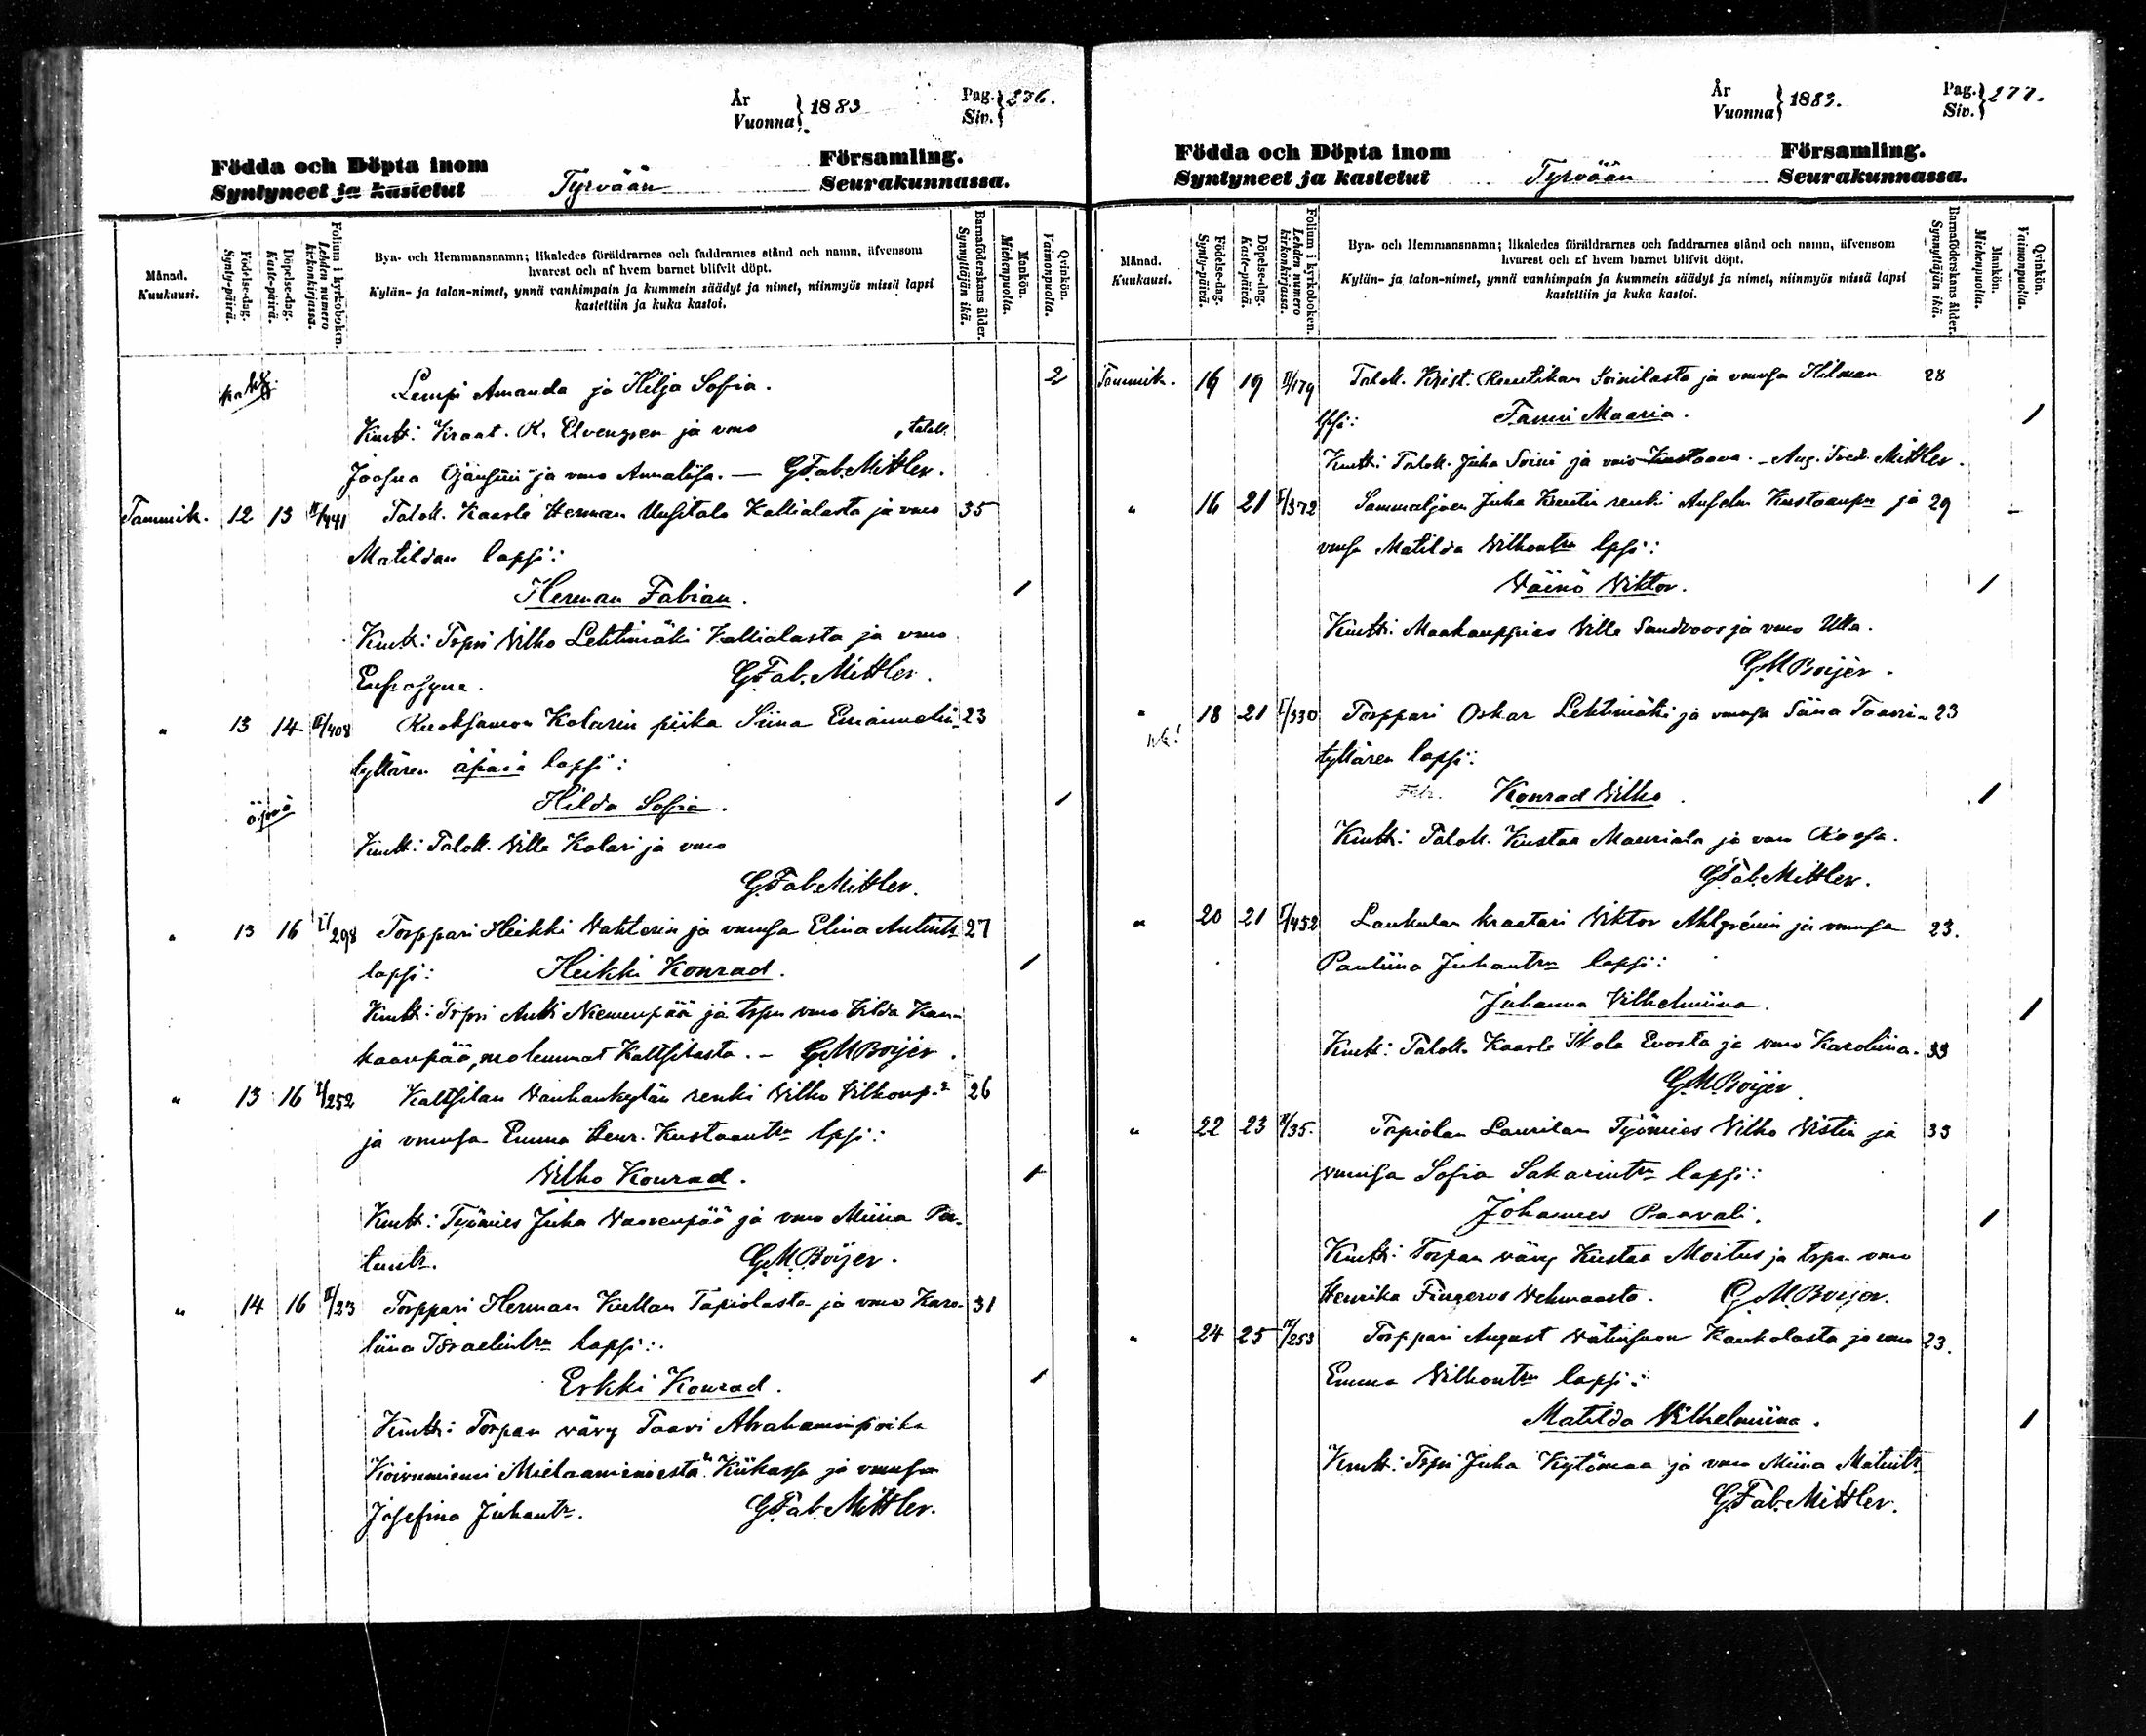 År
Vuonna } 1883
Pag.
Siv. } 276.
Födda och Döpta inom Församling.
Syntyneet ja kastetut Tyrvään Seurakunnassa.
Månad.
Kuukausi.
Födelse-dag.
Synty-päivä.
Döpelse-dag.
Kaste-päivä.
Folium i kyrkoboken.
Lehden numero kirkonkirjassa.
Bya- och Hemmansnamn; likaledes föräldrarnes och faddrarnes stånd och namn, äfvensom
hvarest och af hvem barnet blifvit döpt.
Kylän- ja talon-nimet, ynnä vanhimpain ja kummein säädyt ja nimet, niinmyös missä lapsi
kastettiin ja kuka kastoi.
Barnaföderskans ålder.
Synnyttäjän ikä.
Mankön.
Miehenpuolta.
Qvinkön.
Vaimonpuolta.
Lempi Amanda ja Hilja Sofia. 2
Kmtt: Kraat. K. Elvengren ja vmo , talok.
Joosua Ojansuu ja vmo Annaliisa. — G.Fab.Mittler.
Tammik. 12 13 II/441 Talok. Kaarle Herman Uusitalo Kallialasta ja vmo 35
Matildan lapsi:
Herman Fabian. 1
Kmtt: Trpri Vilho Lehtimäki Kallialasta ja vmo
Eufrosyne. G.Fab.Mittler.
" 13 14 II/408 Ruoksamon Kolarin piika Siina Emanuelin- 23
tyttären äpärä lapsi:
äpärä Hilda Sofia. 1
Kmtt: Talok. Ville Kolari ja vmo
G.Fab.Mittler.
" 13 16 I/298 Torppari Heikki Vahterin ja vmonsa Elina Antintr 27
lapsi: Heikki Konrad. 1
Kmtt: Trpri Antti Niemenpää ja trpn vmo Hilda Kan-
kaanpää, molemmat Kaltsilasta. - G.M.Boijer.
" 13 16 I/252 Kaltsilan Vanhankylän renki Vilho Vilhonp. 26
ja vmonsa Emma Henr. Kustaantrn lpsi:
Vilho Konrad. 1
Kmtt: Työmies Juha Vaarenpää ja vmo Miina
G.M.Boijer.
" 14 16 II/23 Torppari Herman Kullan Tapiolasta ja vmo Karo- 31
liina Israelintrn lapsi:
Erkki Konrad. 1
Kmtt: Torpan vävy Taavi Abrahaminpoika
Koivuniemi Kiikassa ja vmonsa
Josefina Juhantr. G.Fab.Mittler.
År
Vuonna } 1883.
Pag.
Siv. } 277.
Födda och Döpta inom Församling.
Syntyneet ja kastetut Tyrvään Seurakunnassa.
Månad.
Kuukausi.
Födelse-dag.
Synty-päivä.
Döpelse-dag.
Kaste-päivä.
Folium i kyrkoboken.
Lehden numero kirkonkirjassa.
Bya- och Hemmansnamn; likaledes föräldrarnes och faddrarnes stånd och namn, äfvensom
hvarest och af hvem barnet blifvit döpt.
Kylän- ja talon-nimet, ynnä vanhimpain ja kummein säädyt ja nimet, niinmyös missä lapsi
kastettiin ja kuka kastoi.
Barnaföderskans ålder.
Synnyttäjän ikä.
Mankön.
Miehenpuolta.
Qvinkön.
Vaimonpuolta.
Tammik. 16 19 II/179 Talok. Krist. Ruutikan Soinilasta ja vmonsa Hilman 28
lpsi: Fanni Maaria. 1
Kmtt: Talok. Juha Soini ja vmo Kustaava. - Aug. Fred. Mittler.
" 16 21 I/372 Sammaljoen Juha Knutin renki Anselm Kustaanpn ja 29
vmsa Matilda Vilhontrn lpsi:
Väinö Viktor. 1
Kmtt: Maakauppias Ville Sandroos ja vmo Ulla.
G.M.Boijer.
" 18 21 I/330 Torppari Oskar Lehtimäki ja vmonsa Siina Taavin- 23
tyttären lapsi:
Konrad Vilho. 1
Kmtt: Talok. Kustaa Mauriala ja vmo Roosa.
G.Fab.Mittler.
" 20 21 I/452 Laukulan kraatari Viktor Ahlgrénin ja vmonsa 23.
Pauliina Juhantrn lapsi:
Johanna Vilhelmiina. 1
Kmtt: Talok. Kaarle Skola Evosta ja vmo Karoliina. 33
G.M.Boijer
" 22 23 II/35. Tapiolan Laurilan Työmies Vilho Vistin ja 33
vmonsa Sofia Sakarintrn lapsi:
Johannes Paavali. 1
Kmtt: Torpan vävy Kustaa Moitus ja trpn vmo
Henrika Fingeroos Vehmaasta. G.M.Boijer.
" 24 25 II/253 Torppari August Kaukolasta ja vmo 23.
Emma Vilhontrn lapsi:
Matilda Vilhelmiina. 1
Kmtt: Trpri Juha Kytömaa ja vmo Miina Matintr
G.Fab.Mittler.